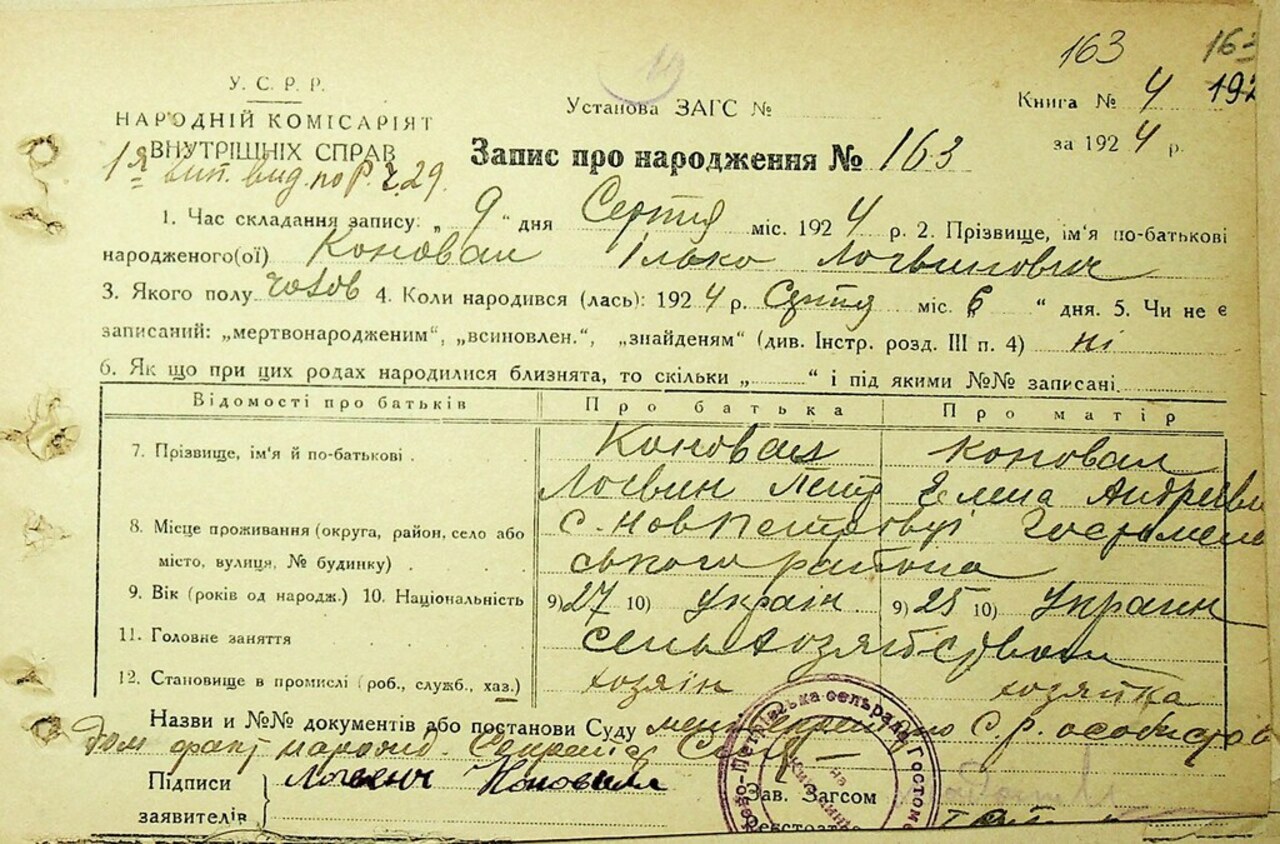 163 163
У. С. Р. Р.
НАРОДНІЙ КОМІСАРІЯТ
ВНУТРІШНІХ СПРАВ
Установа ЗАГС №
Книга № 4
за 1924 р.
Запис про народження № 163
1. Час складання запису: „ 9 “ дня Серпня міс. 1924 р. 2. Прізвище, ім'я по-батькові
народженого(ої) Коновал Ілько Логвинович
3. Якого полу чолов 4. Коли народився (лась): 1924 р. Серпня міс. „ 6 “ дня. 5. Чи не є
записаний: „мертвонародженим“, „всиновлен.“, „знайденям“ (див. Інстр. розд. III п. 4) ні
6. Як що при цих родах народилися близнята, то скільки „ “ і під якими №№ записані.
Відомості про батьків Про батька Про матір
7. Прізвище, ім'я й по-батькові . Коновал Коновал
Логвин Петр Елена
8. Місце проживання (округа, район, село або с. НовПетровці
місто, вулиця, № будинку) . . ського района
9. Вік (років од народж.) 10. Національність 9) 27 10) Украін 9) 25 10) Украин
11. Головне заняття
12. Становище в промислі (роб., служб., хаз.) хозяін хозяйка
Назви и №№ документів або постанови Суду
Підписи Логвин Коновал
заявителів
Зав. Загсом